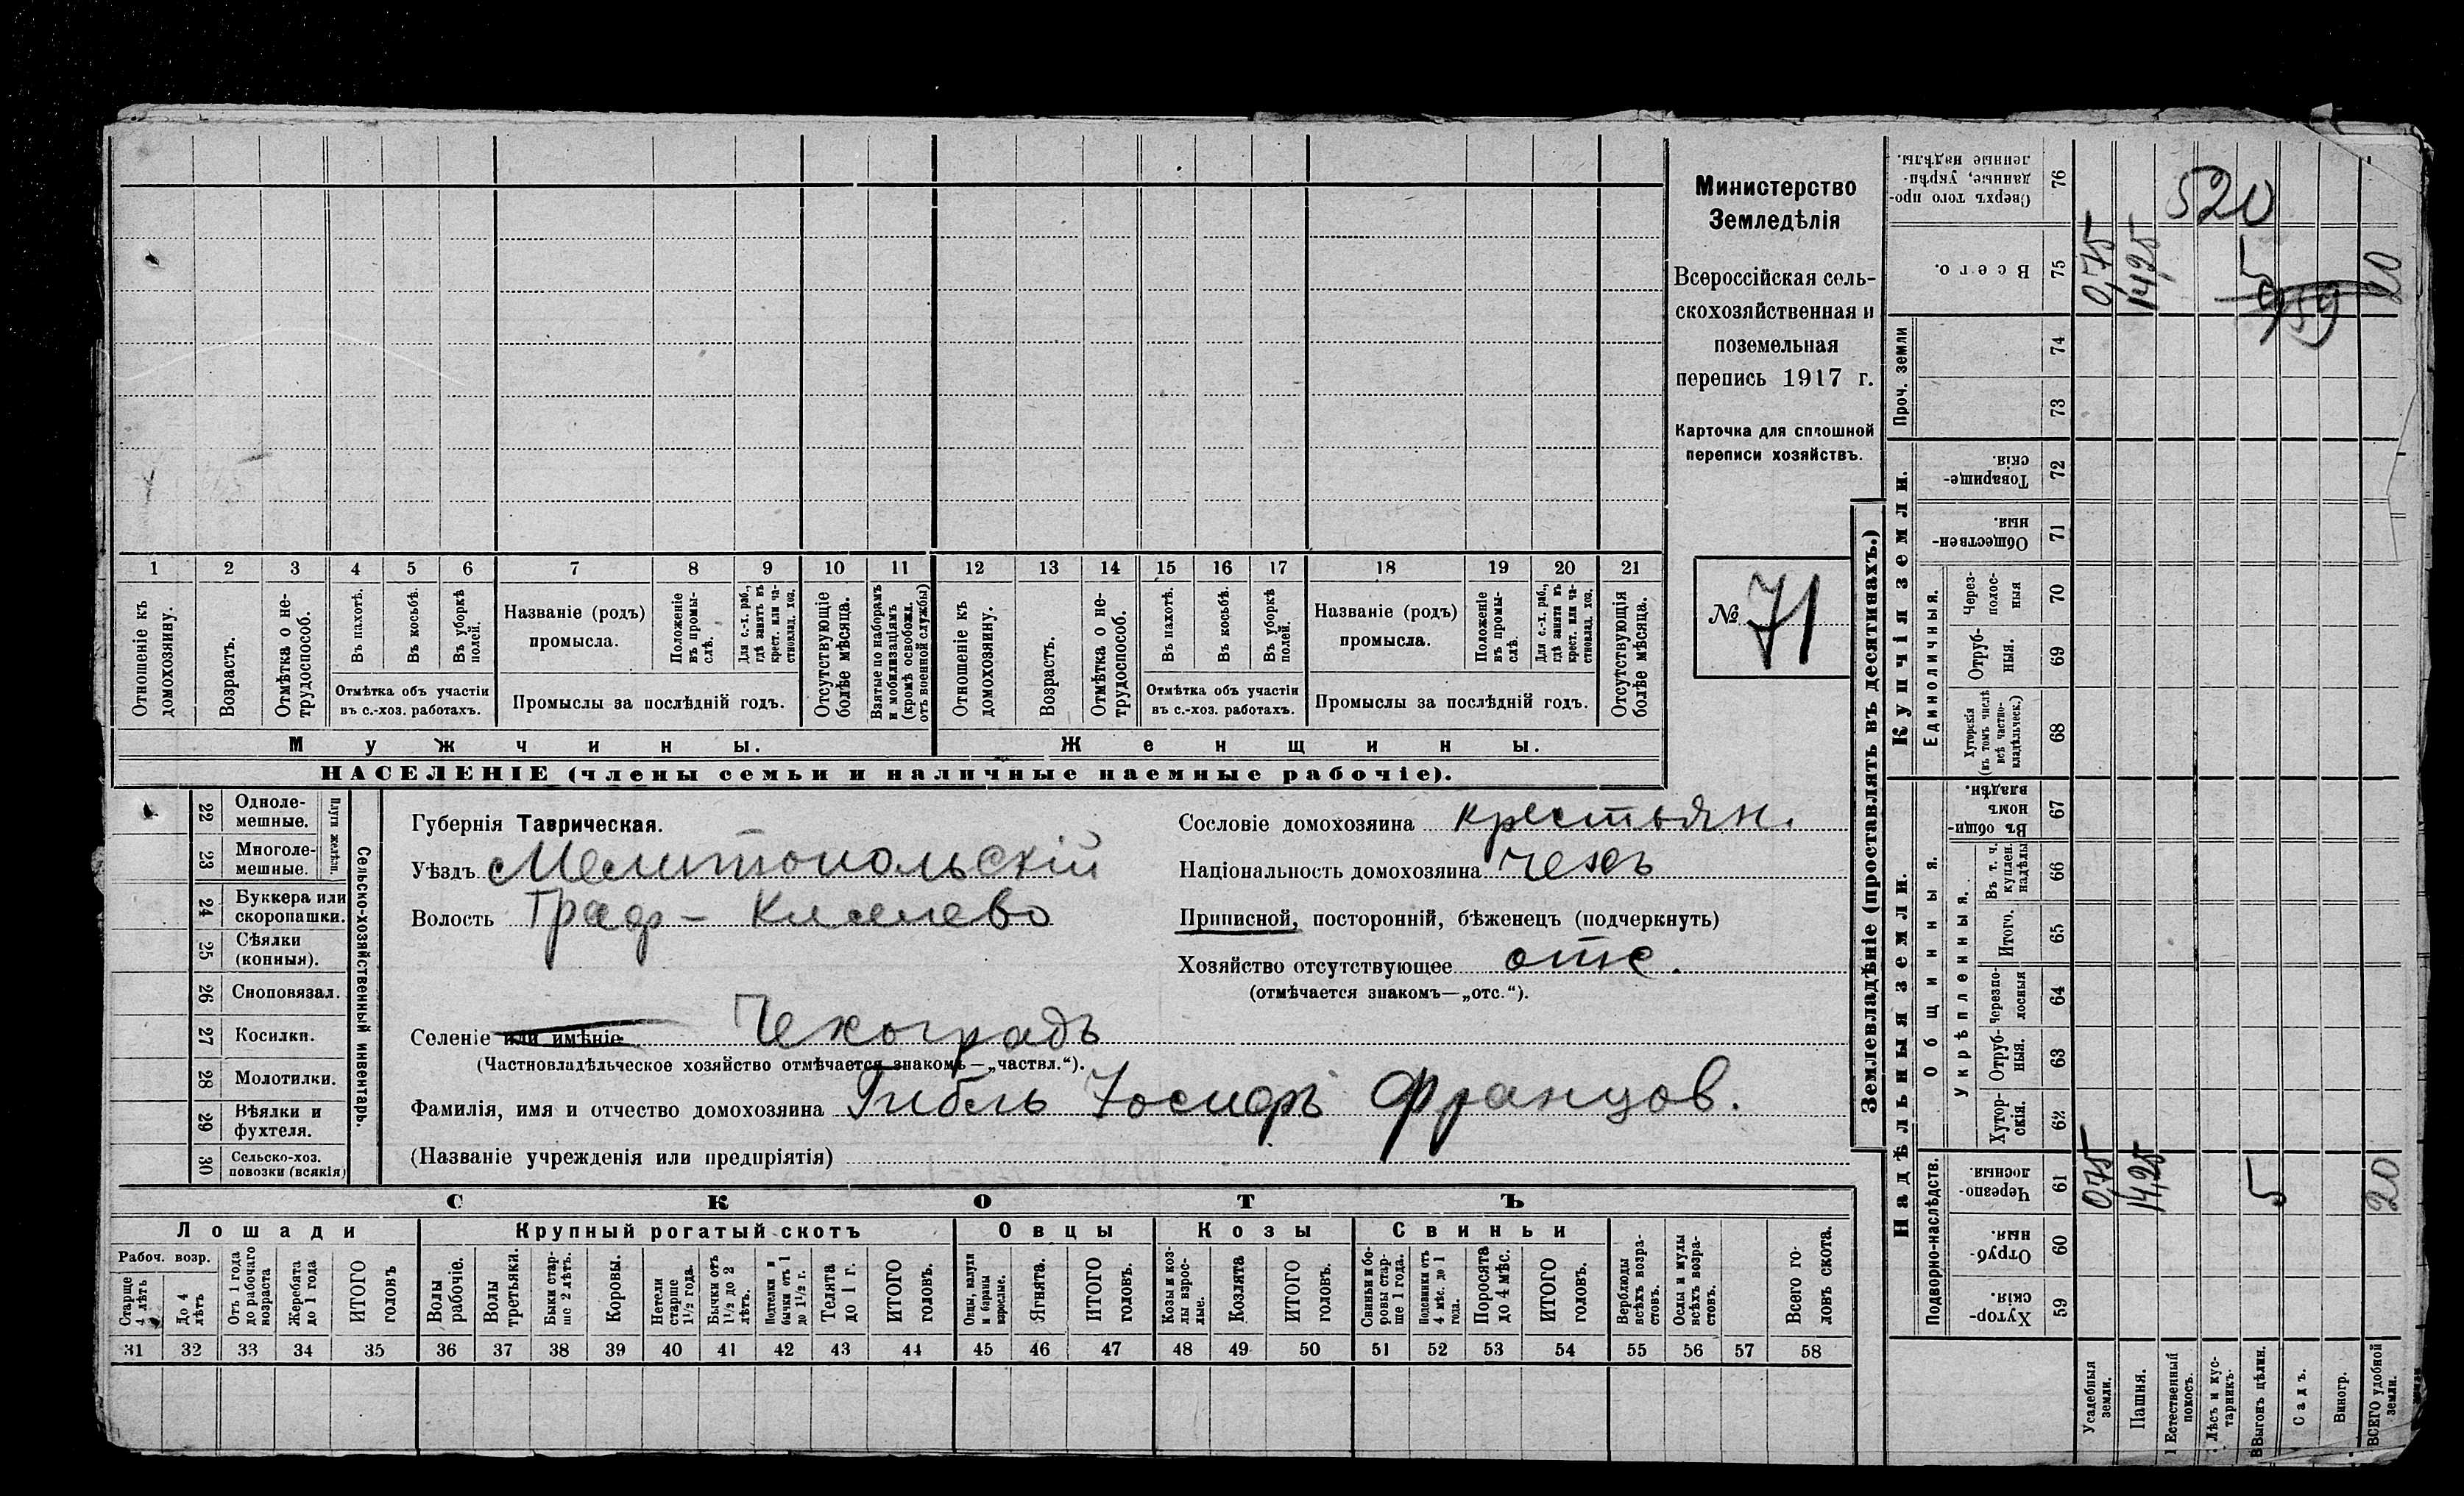 Министерство
Земледѣлія
Всероссійская сель-
скохозяйственная и
поземельная
перепись 1917 г.
Карточка для сплошной
переписи хозяйствъ.
№ 71
1 2 3 4 5 6 7 8 9 10 11 12 13 14 15 16 17 18 19 20 21
Отношеніе къ домохозяину.
Возрастъ.
Отмѣтка о не-трудоспособ.
Въ пахотѣ.
Въ косьбѣ.
Въ уборкѣ полей.
Отмѣтка объ участіи
въ с.-хоз. работахъ.
Названіе (родъ)
промысла.
Положеніе въ промы-слѣ.
Для с.-х. раб., гдѣ занятъ въ крест. или ча-стновлад. хоз.
Промыслы за послѣдній годъ.
Отсутствующіе болѣе мѣсяца.
Взятые по наборамъ и мобилизаціямъ (кромѣ освобожд. отъ военной службы)
Отношеніе къ домохозяину.
Возрастъ.
Отмѣтка о не-трудоспособ.
Въ пахотѣ.
Въ косьбѣ.
Въ уборкѣ полей.
Отмѣтка объ участіи
въ с.-хоз. работахъ.
Названіе (родъ)
промысла.
Положеніе въ промы-слѣ.
Для с.-х. раб., гдѣ занятъ въ крест. или ча-стновлад. хоз.
Промыслы за послѣдній годъ.
Отсутствующія болѣе мѣсяца.
Мужчины.
Женщины.
НАСЕЛЕНІЕ (члены семьи и наличные наемные рабочіе).
22 Одноле-мешные.
23 Многоле-мешные.
Плуги желѣзн.
24 Буккера или скоропашки.
25 Сѣялки (конныя).
26 Сноповязал.
27 Косилки.
28 Молотилки.
29 Вѣялки и фухтеля.
30 Сельско-хоз. повозки (всякія)
Сельско-хозяйственный инвентарь.
Губернія Таврическая.
Уѣздъ Мелитопольскій
Волость Граф-Кисилево
Селеніе или имѣніе Чехоградъ
(Частновладѣльческое хозяйство отмѣчается знакомъ—„частвл.“).
Фамилія, имя и отчество домохозяина Гибель Іосифъ Францов.
(Названіе учрежденія или предпріятія)
Сословіе домохозяина крестьян.
Національность домохозяина чехъ
Приписной, посторонній, бѣженецъ (подчеркнуть)
Хозяйство отсутствующее отс.
(отмѣчается знакомъ—„отс.“).
СКОТЪ
Лошади
Крупный рогатый скотъ
Овцы
Козы
Свиньи
Рабоч. возр.
Старше 4 лѣтъ
До 4 лѣтъ
Отъ 1 года до рабочаго возраста
Жеребята до 1 года
ИТОГО головъ
Волы рабочіе.
Волы третьяки.
Быки стар-ше 2 лѣтъ.
Коровы.
Нетели старше 1½ года.
Бычки отъ 1½ до 2 лѣтъ.
Подтелки и бычки отъ 1 до 1½ г.
Телята до 1 г.
ИТОГО головъ.
Овцы, валухи и бараны взрослые.
Ягнята.
ИТОГО головъ.
Козы и коз-лы взрос-лые.
Козлята
ИТОГО головъ.
Свиньи и бо-ровы стар-ше 1 года.
Подсвинки отъ 4 мѣс. до 1 года.
Поросята до 4 мѣс.
ИТОГО головъ.
Верблюды всѣхъ возра-стовъ.
Ослы и мулы всѣхъ возра-стовъ.
Всего го-ловъ скота.
31 32 33 34 35 36 37 38 39 40 41 42 43 44 45 46 47 48 49 50 51 52 53 54 55 56 57 58
Землевладѣніе (проставлять въ десятинахъ.)
Купчія земли.
Надѣльныя земли.
Сверхъ того про-данные, укрѣп-ленные надѣлы. 76
520
Всего. 75
0,75 14,25 5 20
959
Проч. земли
74
73
Товарище-скія. 72
Обществен-ныя. 71
Единоличныя.
Через-полос-ныя 70
Отруб-ныя. 69
Хуторскія (въ томъ числѣ всѣ частно-владѣльческ.) 68
Общинныя.
Въ общи-номъ владѣн. 67
Укрѣпленныя.
Въ т. ч. куплен. надѣлы 66
Итого. 65
Черезпо-лосныя 64
Отруб-ныя. 63
Хутор-скія. 62
Подворно-наслѣдств.
Черезпо-лосныя. 61
0,75 14,25 5 20
Отруб-ныя 60
Хутор-скія. 59
Усадебныя земли.
Пашня.
Естественный покосъ.
Лѣсъ и кус-тарникъ.
Выгонъ цѣлин.
Садъ.
Виногр.
ВСЕГО удобной земли.